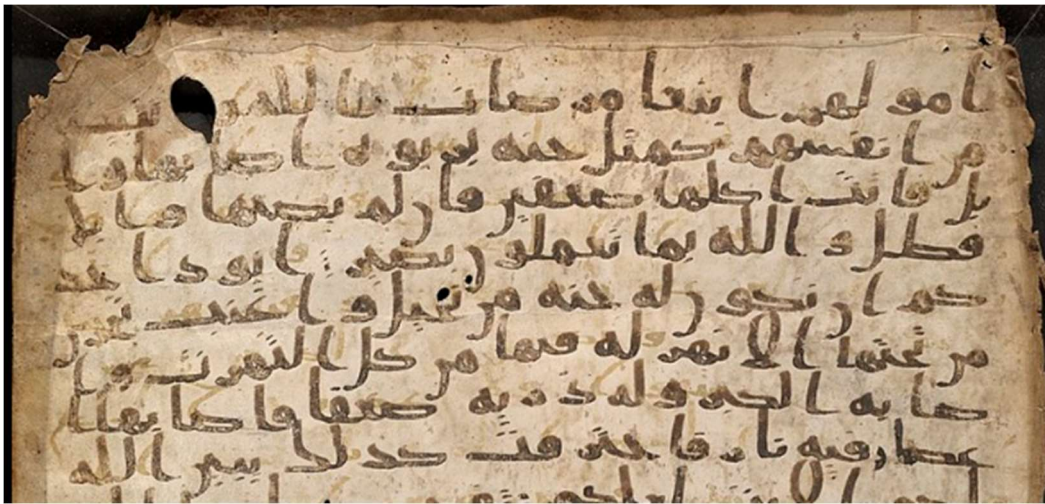 امولهم ابتغا مرضات الله و تثبيتا
من انفسهم كمثل جنه بربوه اصابها وا
بل فاتت اكلها ضعفين فان لم يصبها وابل
فطل و الله بما تعملون بصير ايود احد
كم ان تكون له جنه من نخيل و اعنب تجري
من تحتها الانهر له فيها من كل الثمرت و ا
صابه الكبر وله ذريه ضعفا فاصابها ا
عصار فيه نار فاحترقت كذلك يبين الله